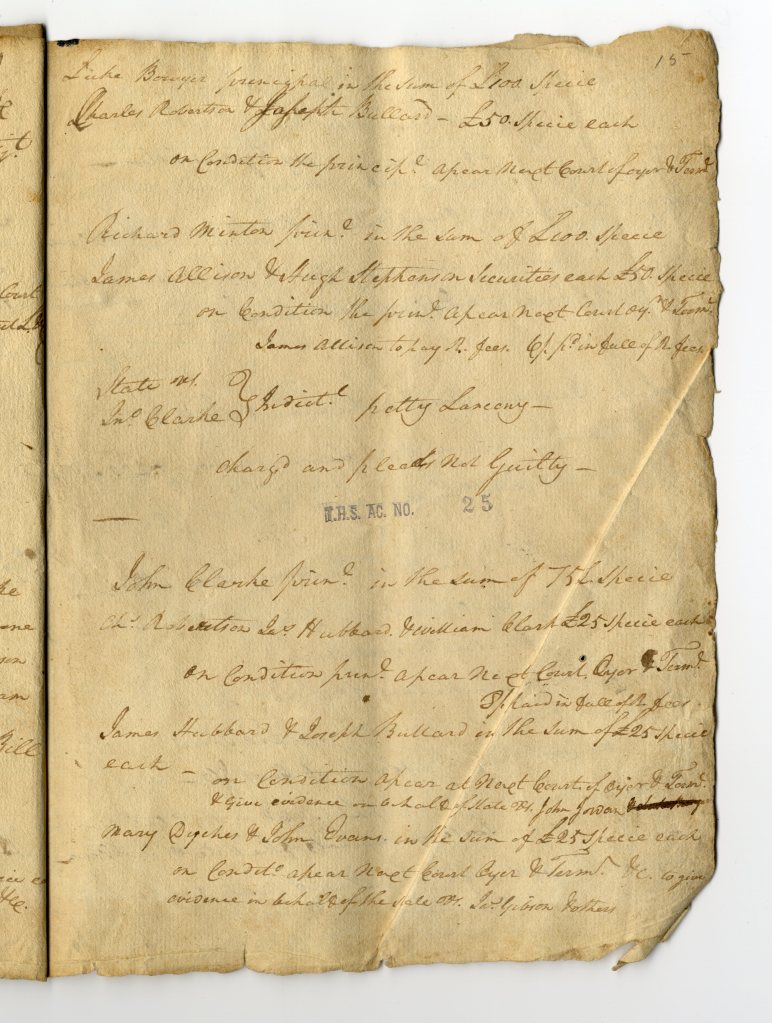 15
Luke Bowyer prencipal in the sum of £100. Specie
Charles Robertson & Joseph Bullard - £50. Specie each
on Condition the princip.l apear Next Court of oyer & Term.r
Richard Minton prin.l in the sum of £100. Specie
James Allison & Hugh Stephenson Securities each £50. Specie
on Condition the prin.l apear Next Court Oy.r & Term.r
James Allison to pay fees. p.d in full of fees
State vs.
Jn.o Clarke } Indict.t petty Larceny —
charg'd and pleads Not Guilty —
T.H.S. AC. NO. 25
John Clarke prin.l in the sum of 75£. Specie
Ch.s Robertson Ja.s Hubbard. & William Clark £25 Specie each
on Condition prin.l apear Next Court. Oyer & Term.r
paid in full of fees
James Hubbard & Joseph Bullard in the sum of £25 Specie
each —
on Condition apear at Next Court of Oyer & Term.r
& Give evidence on behalf of State vs. John Jordan
Mary Dyches & John Evans. in the sum of £25 Specie each
on Condit.o apear Next Court Oyer & Term.r &c. to give
evidence in behalf of the State vs. Ja.s Gibson & others
Court
the
am
Bill
&c.